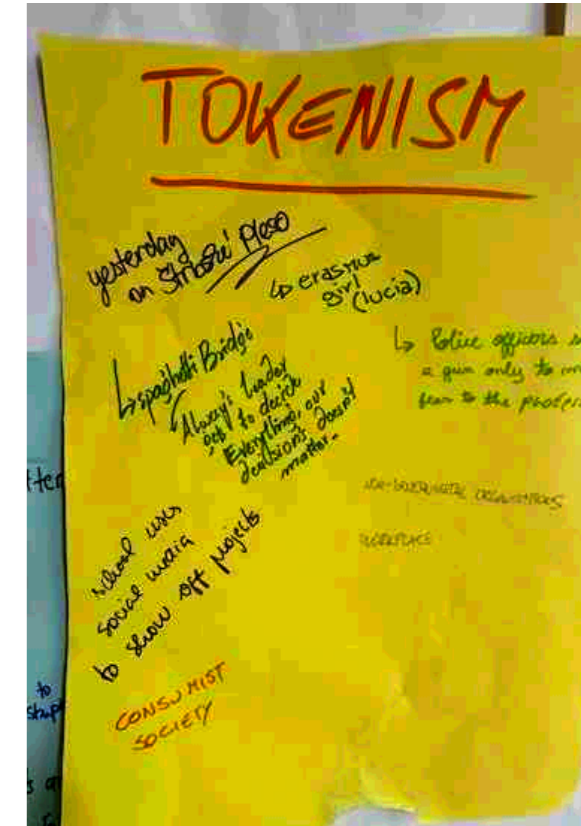 TOKENISM
yesterday
on Štrbské Pleso
↳ erasmus
girl
(lucia)
↳ spaghetti Bridge
Always leader
to decide
Everything, our
decisions doesn't
matter.
↳ Police officers
a gun only to
fear to the
NON-GOVERNMENTAL ORGANISATIONS
WORKPLACE
school uses
social media
to show off projects
CONSUMIST
SOCIETY
to